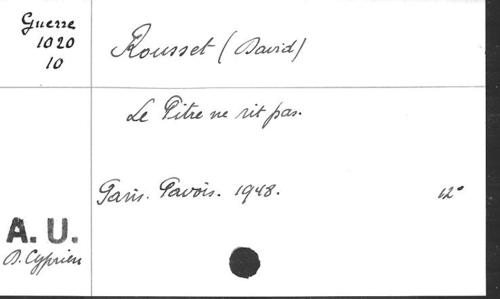 Guerre
1020
10
Rousset (David)
Le Pitre ne rit pas.
Paris. Pavois. 1948.
12°
A. U.
D. Cyprien